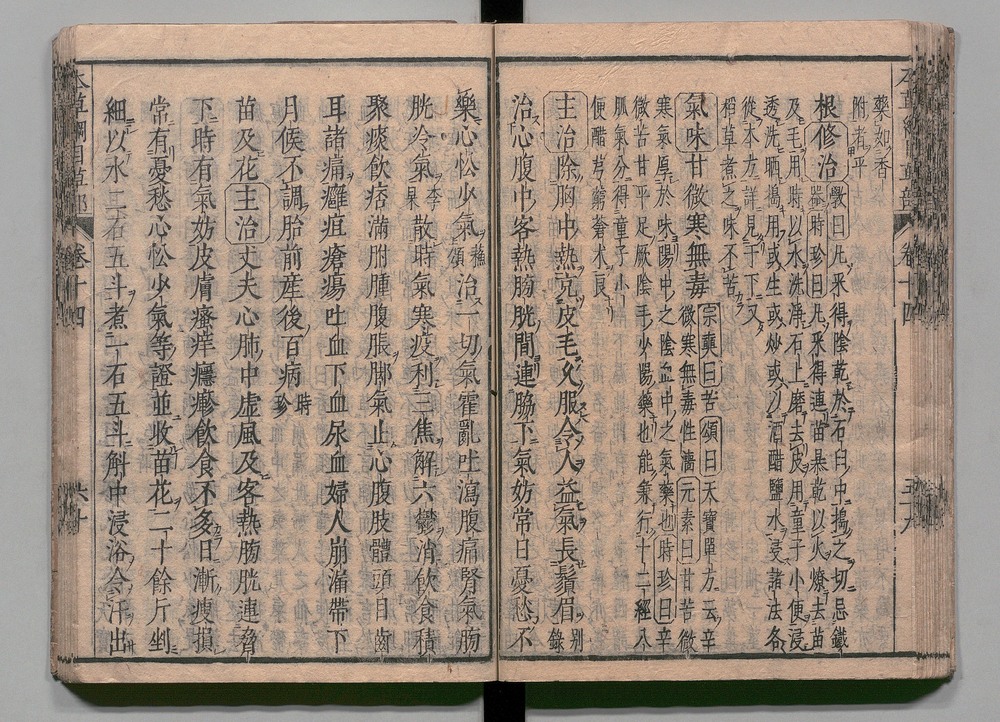 藥如香
附者平
根修治斆曰凡采得陰乾於石臼中搗之切忌鐵
器時珍曰凡采得連苗暴乾以火燎去苗
及毛用時以水洗淨石上磨去皮用童子小便浸
透洗晒搗用或生或炒或以酒醋鹽水浸諸法各
從本方詳見于下又
稻草煮之味不苦
氣味甘微寒無毒宗奭曰苦頌曰天寶單方云辛
微寒無毒性濇元素曰甘苦微
寒氣厚於味陽中之陰血中之氣藥也時珍曰辛
微苦甘平足厥陰手少陽藥也能兼行十二經八
脈氣分得童子小
便醋芎藭蒼朮良
主治除胸中熱充皮毛久服令人益氣長鬚眉別錄
治心腹中客熱膀胱間連脇下氣妨常日憂愁不
藥心忪少氣蘇頌治一切氣霍亂吐瀉腹痛腎氣膀
胱冷氣李杲散時氣寒疫利三焦解六鬱消飲食積
聚痰飲痞滿胕腫腹脹腳氣止心腹肢體頭目齒
耳諸痛癰疽瘡瘍吐血下血尿血婦人崩漏帶下
月候不調胎前産後百病時珍
苗及花主治丈夫心肺中虛風及客熱膀胱連脅
下時有氣妨皮膚瘙痒癮疹飲食不多日漸瘦損
常有憂愁心忪少氣等證並收苗花二十餘斤剉
細以水二石五斗煮一石五斗斛中浸浴令汗出